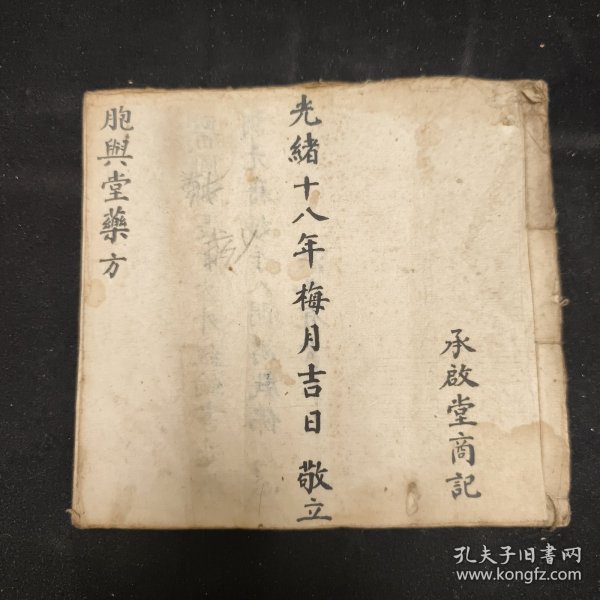 承啟堂商記
光緒十八年梅月吉日 敬立
胞與堂藥方
孔夫子旧书网
www.kongfz.com